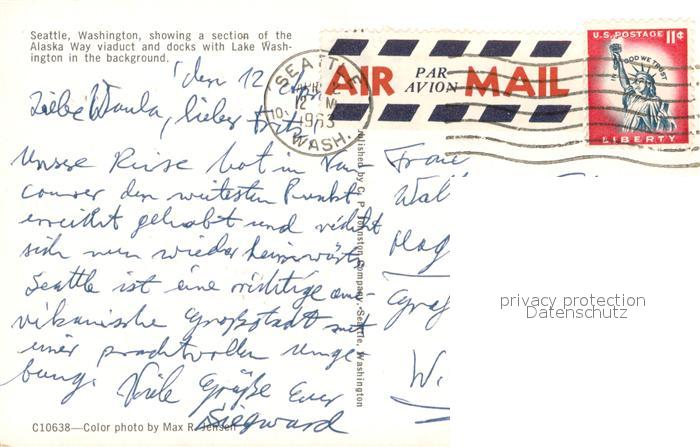 Seattle, Washington, showing a section of the
Alaska Way viaduct and docks with Lake Wash-
ington in the background.
AIR PAR AVION MAIL
U.S. POSTAGE 11¢
IN GOD WE TRUST
LIBERTY
SEATTLE
12 M
1963
WASH.
den 12.
Liebe, lieber Fritz,
Unsere Reise hat in Van-
couver den weitesten Punkt
erreicht gehabt und richtet
sich nun wieder heimwärts.
Seattle ist eine richtige ame-
rikanische Großstadt mit
einer prachtvollen Umge-
bung. Viele Grüße Euer
Siegward
Published by C. P. Johnston Company, Seattle, Washington
W.
privacy protection
Datenschutz
C10638—Color photo by Max R. Jensen